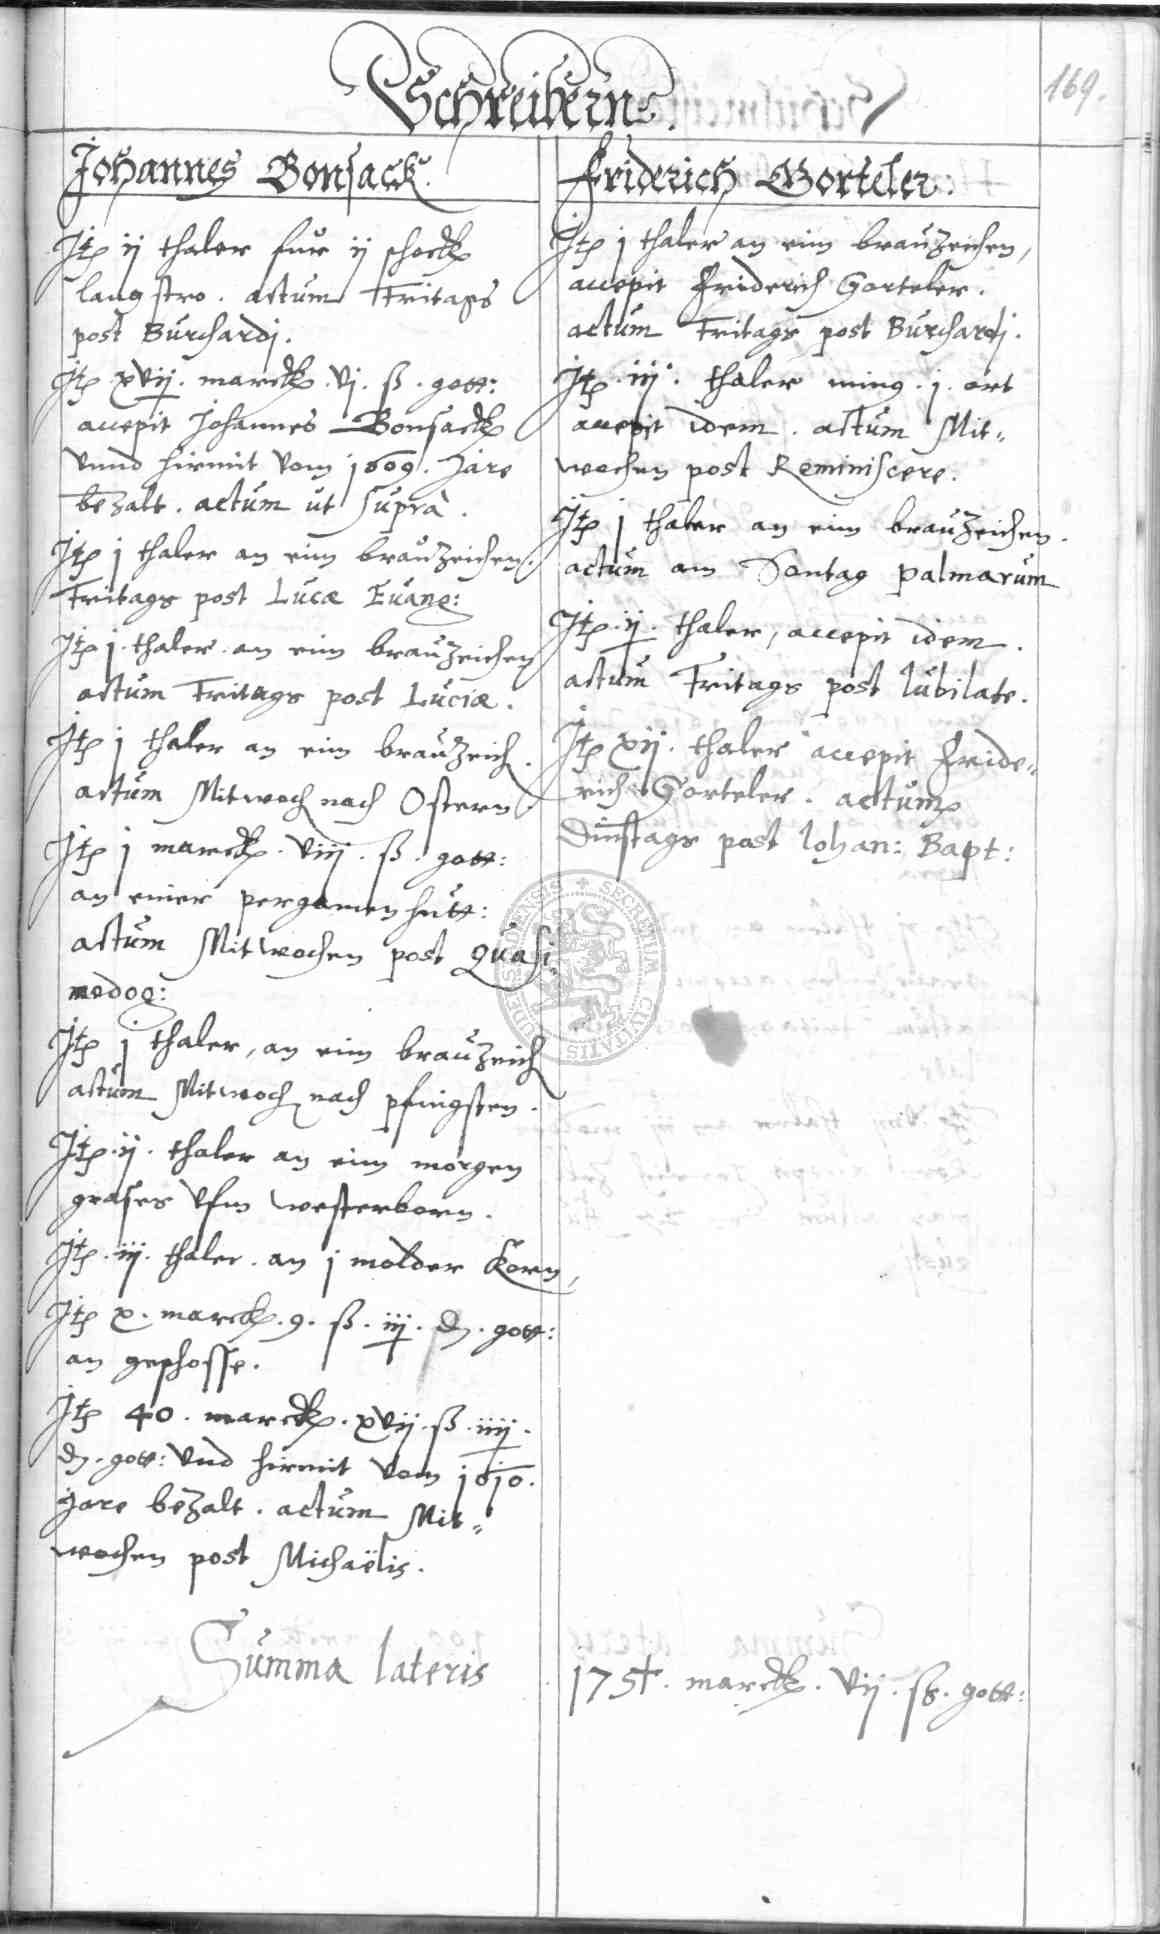 169.
Schreibern.
Johannes Bonsack.
Jtp ij thaler fur ij schock
lang stro. actum Fritags
post Burchardj.
Jtp xvij. marck. vj. ß. gott:
accepit Johannes Bonsack
vnnd hirmit vom 1609. Jare
bezalt. actum ut supra.
Jtp j thaler an eim brauzeichen.
Fritags post Lucæ Euang:
Jtp j. thaler. an eim brauzeichen
actum Fritags post Luciæ.
Jtp j thaler an eim brauzeich.
actum Mitwoch nach Ostern.
Jtp j marck. viij. ß. gott:
an einer pergamen hutt:
actum Mitwochen post Quasi
modog:
Jtp j thaler, an eim brauzeich
actum Mitwoch nach pfingsten.
Jtp. ij. thaler an eim morgen
grases vfm westerborn.
Jtp. iij. thaler. an j molder Korn,
Jtp x. marck. 9. ß. iij. d. gott:
an geschosse.
Jtp 40. marck. xvij. ß. iiij.
d. gott: vnd hirmit vom 1610.
Jare bezalt. actum Mit„
wochen post Michaëlis.
Friderich Gorteler:
Jtp j thaler an eim brauzeichen,
accepit Friderich Gorteler.
actum Fritags post Burchardj.
Jtp. iij. thaler ming. j. ort
accepit idem. actum Mit„
wochen post Reminiscere.
Jtp j thaler an eim brauzeichen.
actum am Sontag palmarum
Jtp. ij. thaler, accepit idem.
actum Fritags post Iubilate.
Jtp xij. thaler accepit Fride„
rich Gorteler. actum
Dinstags post Iohan: Bapt:
Summa lateris 175½. marck. vij. ß. gott:
SECRETUM CIVITATIS